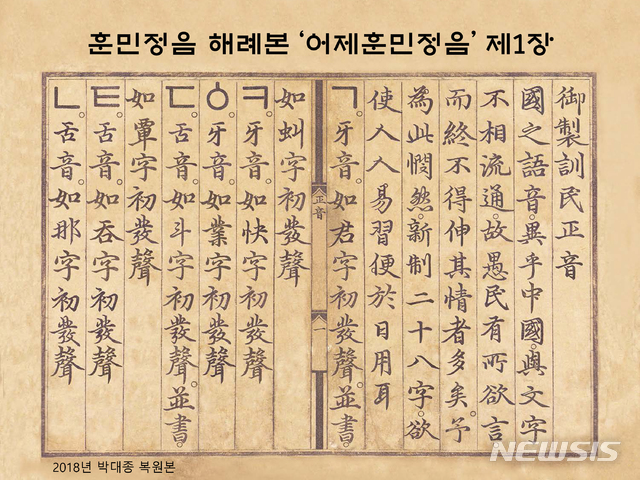 훈민정음 해례본 ‘어제훈민정음’ 제1장
御製訓民正音
國之語音。異乎中國。與文字
不相流通。故愚民有所欲言
而終不得伸其情者多矣。予
為此憫然。新制二十八字。欲
使人人易習便於日用耳
ㄱ。牙音。如君字初發聲。並書。
正音
一
如虯字初發聲
ㅋ。牙音。如快字初發聲
ㆁ。牙音。如業字初發聲
ㄷ。舌音。如斗字初發聲。並書。
如覃字初發聲
ㅌ。舌音。如呑字初發聲
ㄴ。舌音。如那字初發聲
NEWSIS
2018년 박대종 복원본